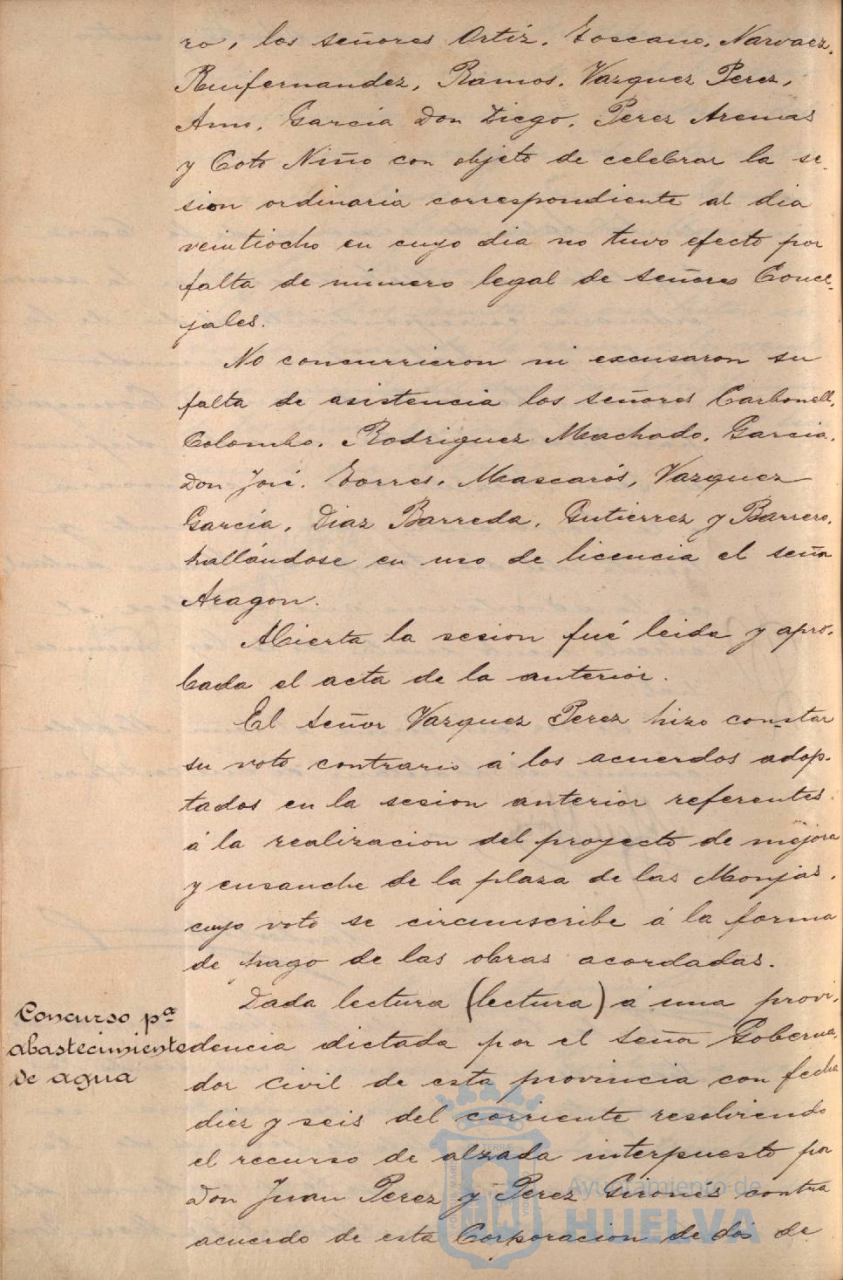 ro, los señores Ortiz, Toscano, Narvaez,
Ruifernandez, Ramos, Vazquez Perez,
Amo, Garcia Don Diego, Perez Arenas
y Coto Niño con objeto de celebrar la se-
sion ordinaria correspondiente al dia
veintiocho en cuyo dia no tuvo efecto por
falta de número legal de señores Conce-
jales.
No concurrieron ni excusaron su
falta de asistencia los señores Carbonell,
Colombo, Rodriguez Machado, Garcia,
Don José, Torres, Mascarós, Vazquez
García, Diaz Barreda, Gutierrez y Barrero,
hallándose en uso de licencia el señor
Aragon.
Abierta la sesion fué leida y apro-
bada el acta de la anterior.
El señor Vazquez Perez hizo constar
su voto contrario á los acuerdos adop-
tados en la sesion anterior referentes
á la realizacion del proyecto de mejora
y ensanche de la plaza de las Monjas,
cuyo voto se circunscribe á la forma
de pago de las obras acordadas.
Concurso pª
abastecimiento
de agua
Dada lectura (lectura) á una provi-
dencia dictada por el señor Goberna-
dor civil de esta provincia con fecha
diez y seis del corriente resolviendo
el recurso de alzada interpuesto por
Don Juan Perez y Perez Gironés contra
acuerdo de esta Corporacion de dos de
Ayuntamiento de
HUELVA